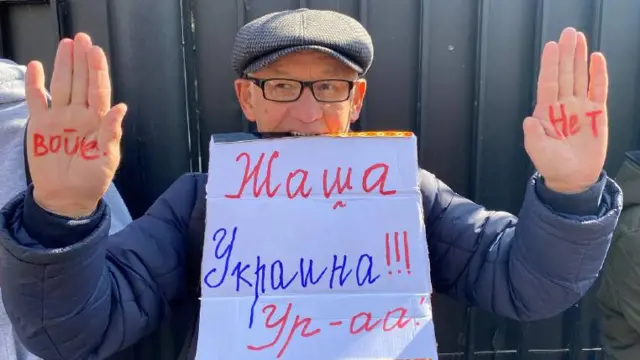 войе
Нет
Жаша
Украина!!!
Ур-аа!